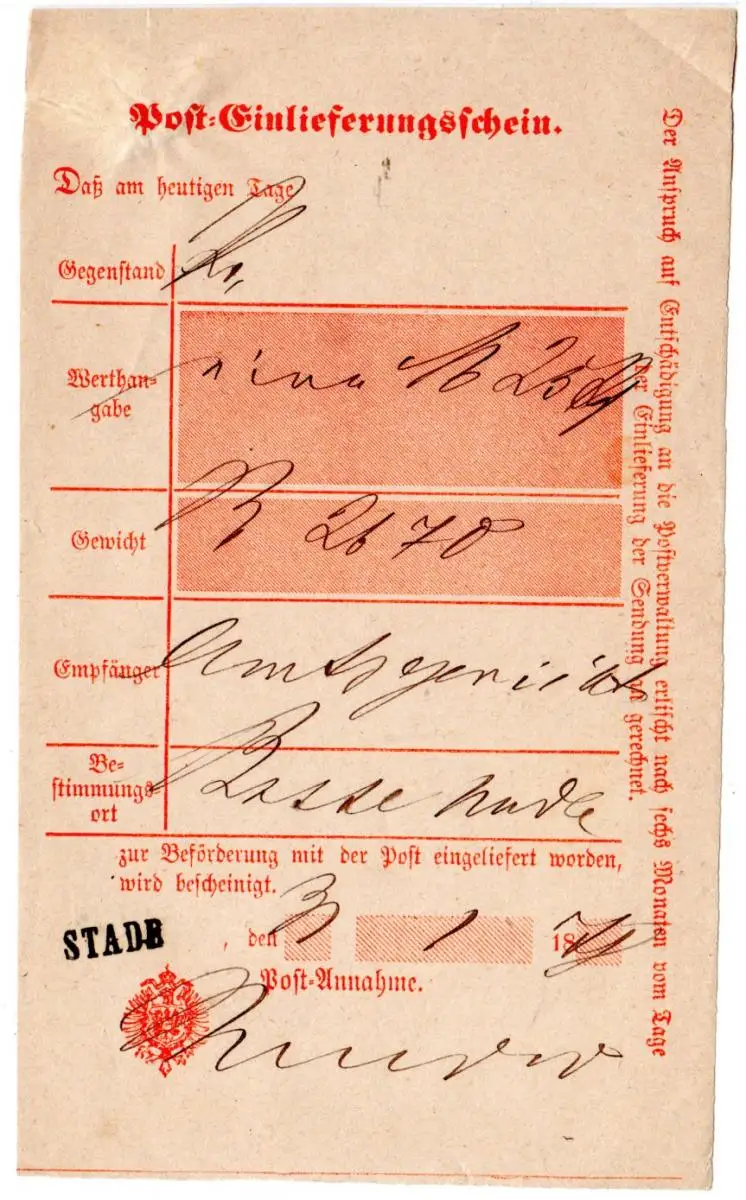 Post-Einlieferungsschein.
Daß am heutigen Tage
Gegenstand
Werthan-
gabe
Gewicht 2670
Empfänger Amtsgericht
Be-
stimmungs-
ort
zur Beförderung mit der Post eingeliefert worden,
wird bescheinigt.
STADE, den 3 1 18
Post-Annahme.
Der Anspruch auf Entschädigung an die Postverwaltung erlischt nach sechs Monaten vom Tage
der Einlieferung der Sendung an gerechnet.